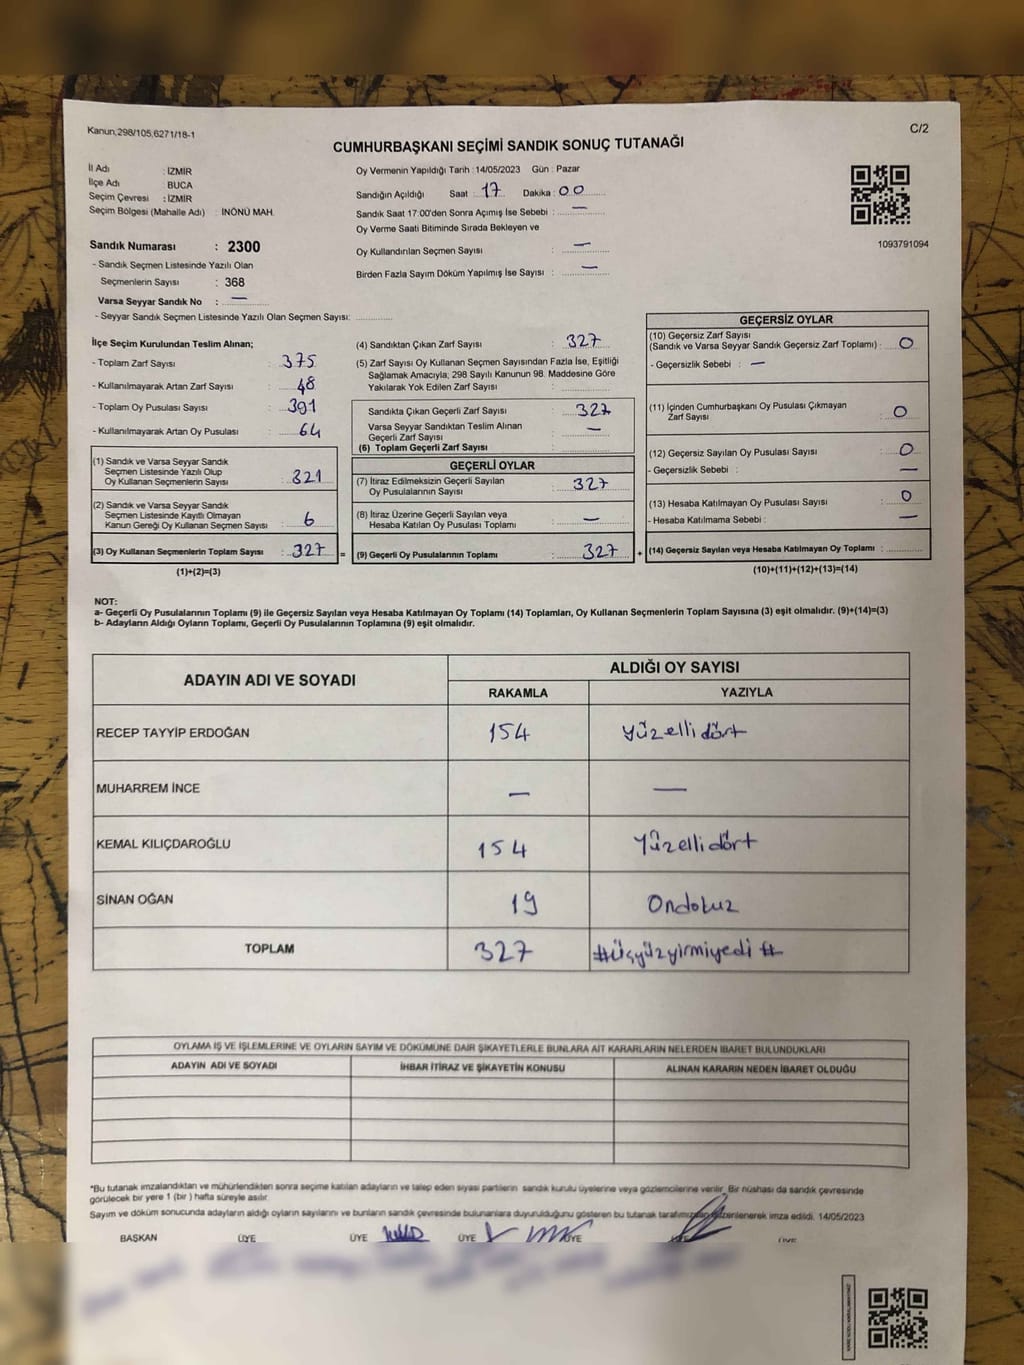 Kanun,298/105,6271/18-1
C/2
CUMHURBAŞKANI SEÇİMİ SANDIK SONUÇ TUTANAĞI
İl Adı : İZMİR
İlçe Adı : BUCA
Seçim Çevresi : İZMİR
Seçim Bölgesi (Mahalle Adı) : İNÖNÜ MAH.
Sandık Numarası : 2300
- Sandık Seçmen Listesinde Yazılı Olan
Seçmenlerin Sayısı : 368
Varsa Seyyar Sandık No : —
- Seyyar Sandık Seçmen Listesinde Yazılı Olan Seçmen Sayısı:
Oy Vermenin Yapıldığı Tarih : 14/05/2023 Gün : Pazar
Sandığın Açıldığı Saat : 17 Dakika : 00
Sandık Saat 17:00'den Sonra Açımış İse Sebebi : —
Oy Verme Saati Bitiminde Sırada Bekleyen ve
Oy Kullandırılan Seçmen Sayısı : —
Birden Fazla Sayım Döküm Yapılmış İse Sayısı : —
1093791094
İlçe Seçim Kurulundan Teslim Alınan;
- Toplam Zarf Sayısı : 375
- Kullanılmayarak Artan Zarf Sayısı : 48
- Toplam Oy Pusulası Sayısı : 391
- Kullanılmayarak Artan Oy Pusulası : 64
(1) Sandık ve Varsa Seyyar Sandık
Seçmen Listesinde Yazılı Olup
Oy Kullanan Seçmenlerin Sayısı : 321
(2) Sandık ve Varsa Seyyar Sandık
Seçmen Listesinde Kayıtlı Olmayan
Kanun Gereği Oy Kullanan Seçmen Sayısı : 6
(3) Oy Kullanan Seçmenlerin Toplam Sayısı : 327 =
(1)+(2)=(3)
(4) Sandıktan Çıkan Zarf Sayısı : 327
(5) Zarf Sayısı Oy Kullanan Seçmen Sayısından Fazla İse, Eşitliği
Sağlamak Amacıyla; 298 Sayılı Kanunun 98. Maddesine Göre
Yakılarak Yok Edilen Zarf Sayısı :
Sandıkta Çıkan Geçerli Zarf Sayısı : 327
Varsa Seyyar Sandıktan Teslim Alınan
Geçerli Zarf Sayısı : —
(6) Toplam Geçerli Zarf Sayısı :
GEÇERLİ OYLAR
(7) İtiraz Edilmeksizin Geçerli Sayılan
Oy Pusulalarının Sayısı : 327
(8) İtiraz Üzerine Geçerli Sayılan veya
Hesaba Katılan Oy Pusulası Toplamı : —
(9) Geçerli Oy Pusulalarının Toplamı : 327 +
GEÇERSİZ OYLAR
(10) Geçersiz Zarf Sayısı
(Sandık ve Varsa Seyyar Sandık Geçersiz Zarf Toplamı) : 0
- Geçersizlik Sebebi : —
(11) İçinden Cumhurbaşkanı Oy Pusulası Çıkmayan
Zarf Sayısı : 0
(12) Geçersiz Sayılan Oy Pusulası Sayısı : 0
- Geçersizlik Sebebi : —
(13) Hesaba Katılmayan Oy Pusulası Sayısı : 0
- Hesaba Katılmama Sebebi : —
(14) Geçersiz Sayılan veya Hesaba Katılmayan Oy Toplamı :
(10)+(11)+(12)+(13)=(14)
NOT:
a- Geçerli Oy Pusulalarının Toplamı (9) ile Geçersiz Sayılan veya Hesaba Katılmayan Oy Toplamı (14) Toplamları, Oy Kullanan Seçmenlerin Toplam Sayısına (3) eşit olmalıdır. (9)+(14)=(3)
b- Adayların Aldığı Oyların Toplamı, Geçerli Oy Pusulalarının Toplamına (9) eşit olmalıdır.
ADAYIN ADI VE SOYADI
ALDIĞI OY SAYISI
RAKAMLA YAZIYLA
RECEP TAYYİP ERDOĞAN 154 Yüzellidört
MUHARREM İNCE — —
KEMAL KILIÇDAROĞLU 154 Yüzellidört
SİNAN OĞAN 19 Ondokuz
TOPLAM 327 #üçyüzyirmiyedi#
OYLAMA İŞ VE İŞLEMLERİNE VE OYLARIN SAYIM VE DÖKÜMÜNE DAİR ŞİKAYETLERLE BUNLARA AİT KARARLARIN NELERDEN İBARET BULUNDUKLARI
ADAYIN ADI VE SOYADI İHBAR İTİRAZ VE ŞİKAYETİN KONUSU ALINAN KARARIN NEDEN İBARET OLDUĞU
*Bu tutanak imzalandıktan ve mühürlendikten sonra seçime katılan adayların ve talep eden siyasi partilerin sandık kurulu üyelerine veya gözlemcilerine verilir. Bir nüshası da sandık çevresinde
görülecek bir yere 1 (bir) hafta süreyle asılır.
Sayım ve döküm sonucunda adayların aldığı oyların sayılarını ve bunların sandık çevresinde bulunanlara duyurulduğunu gösteren bu tutanak tarafımızdan düzenlenerek imza edildi. 14/05/2023
BAŞKAN ÜYE ÜYE ÜYE ÜYE ÜYE ÜYE